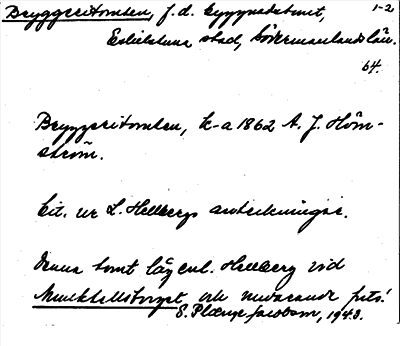 Bryggeritomten, f.d. byggnadstomt, 1-2
Eskilstuna stad, Södermanlands län.
64.
Bryggeritomten, k-a 1862 A. J. Holm-
ström.
Cit. ur L. Hellbergs anteckningar.
Denna tomt låg enl. Hellberg vid
Munktellstorget och nuvarande
E. Jacobson, 1943.